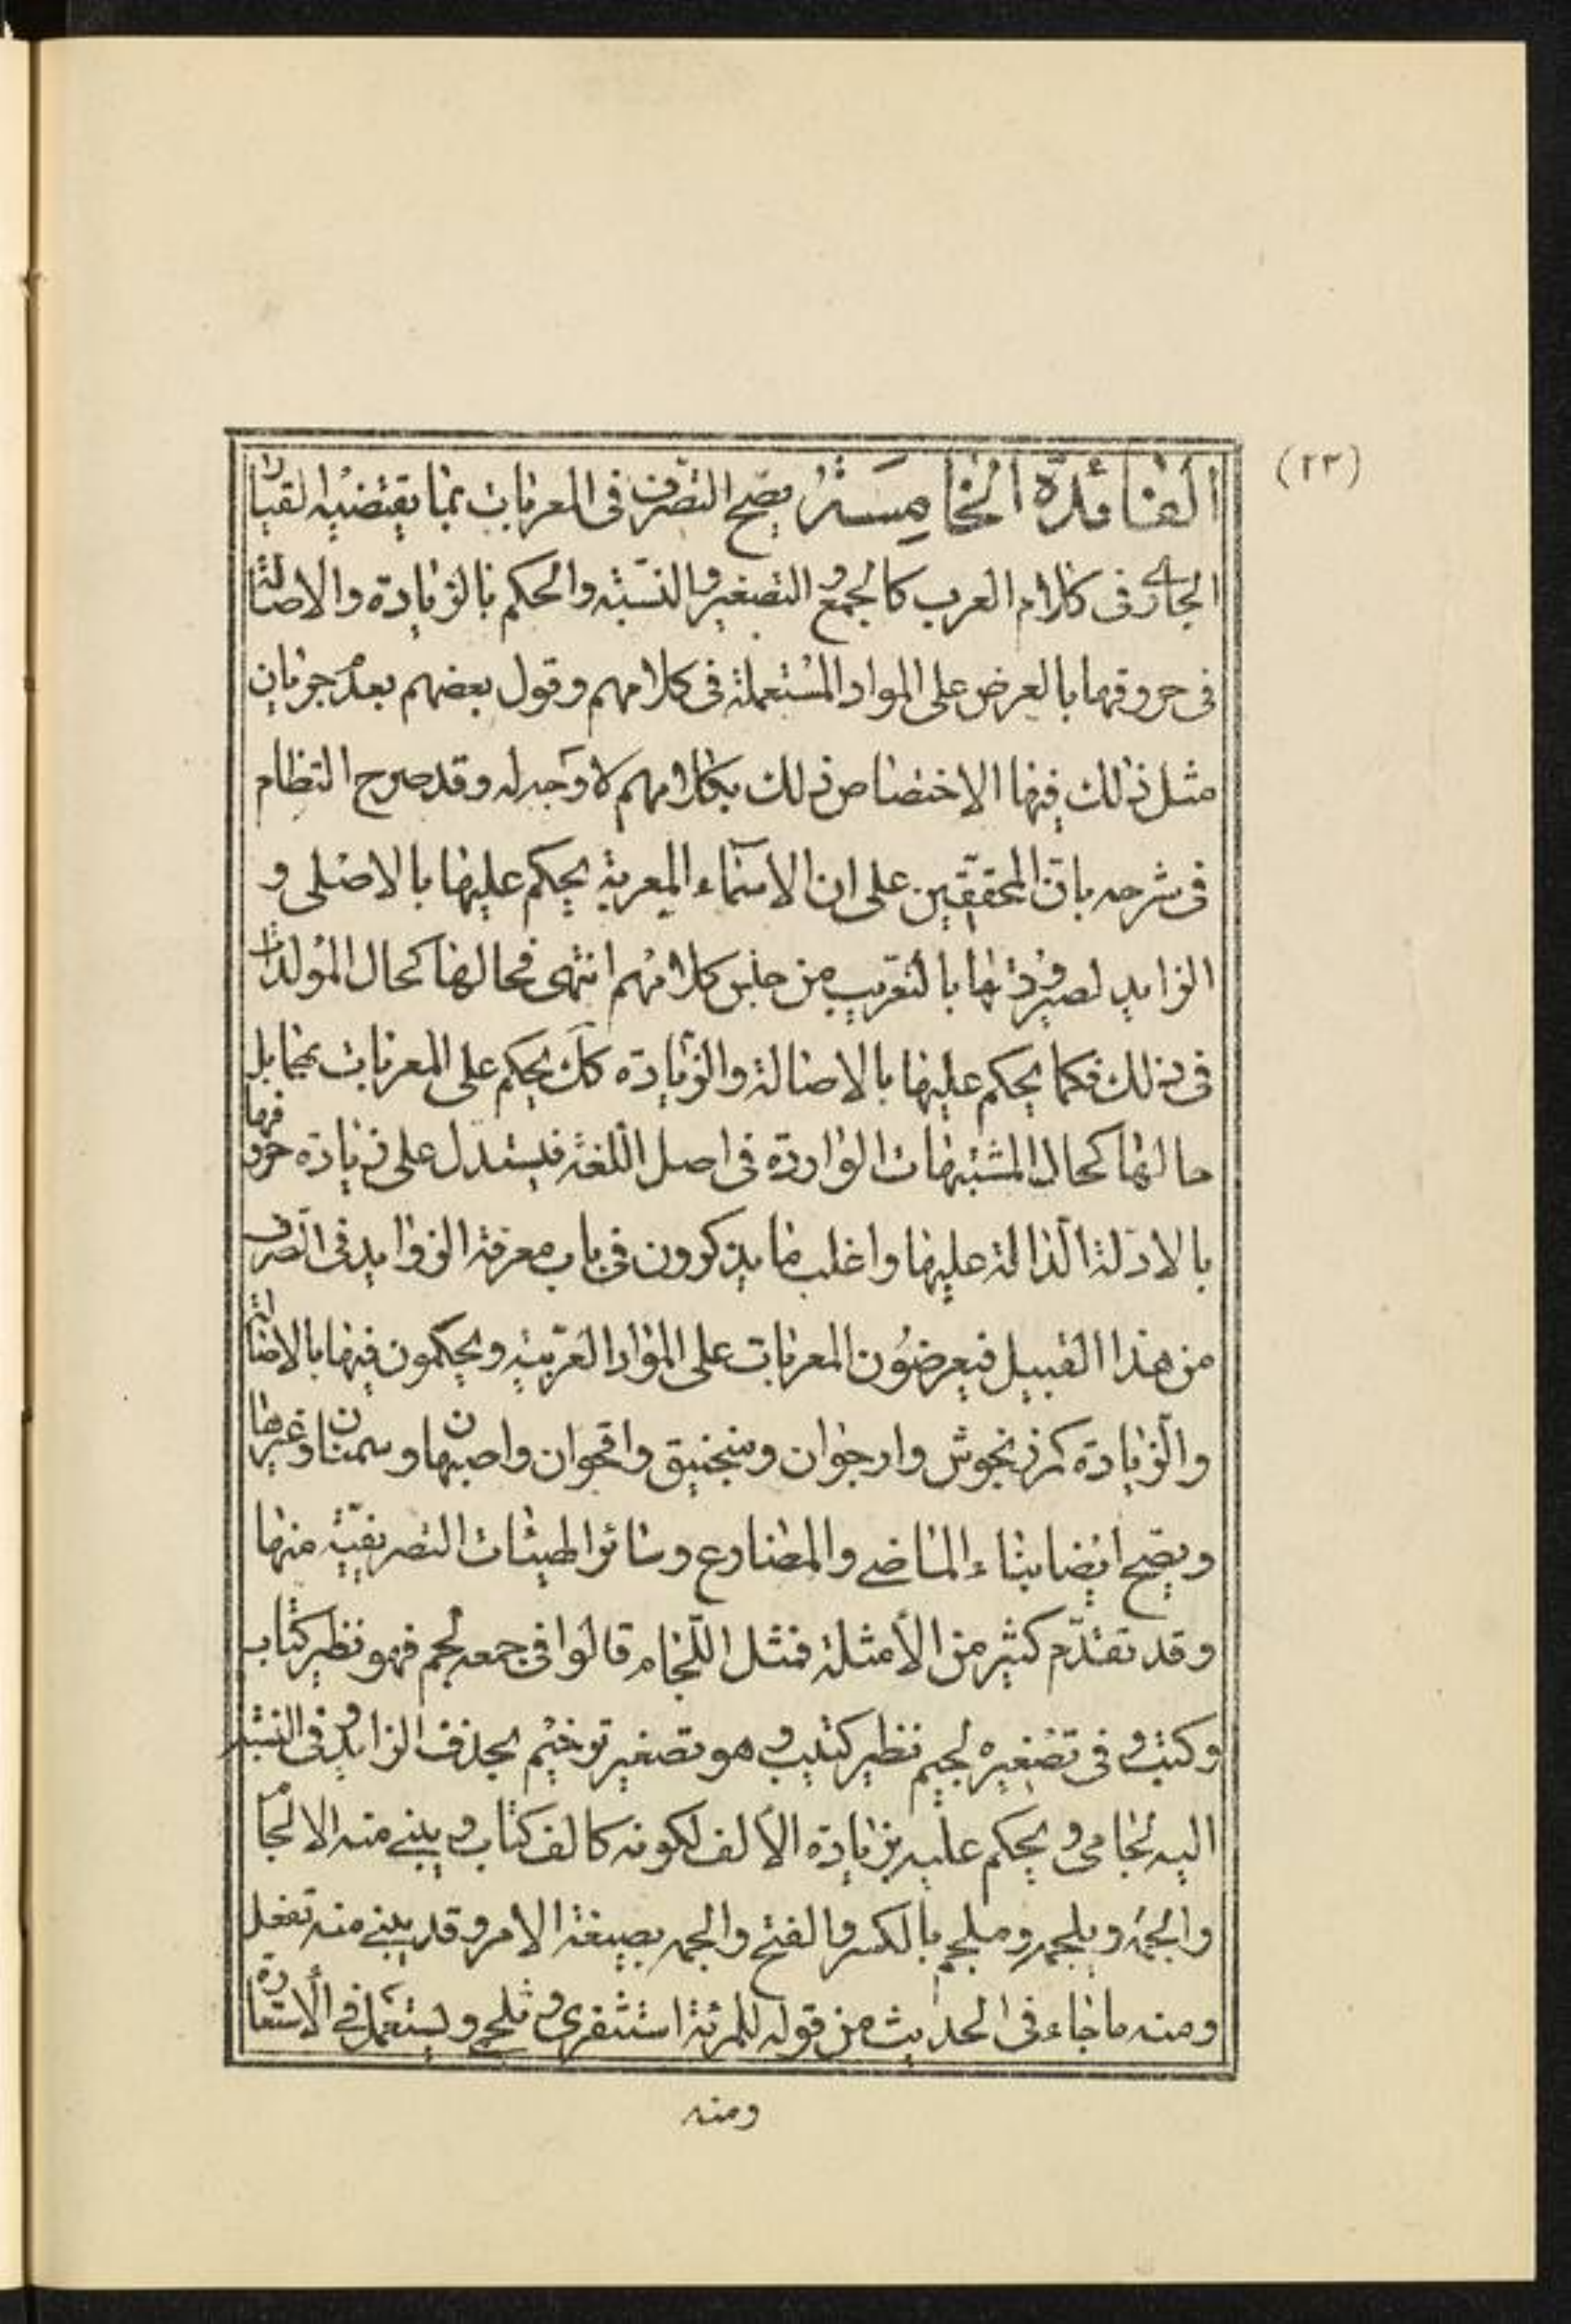 (٢٣)
الفائدة الخامسة يصح التصرف فى المعربات بما يقتضيه القياس
الجارى فى كلام العرب كالجمع و التصغير و النسبة والحكم بالزيادة والاصالة
فى حروفها بالعرض على المواد المستعملة فى كلامهم وقول بعضهم بعدم جريان
مثل ذلك فيها الاختصاص ذلك بكلامهم لا وجه له وقد صرح النظام
فى شرحه بان المحققين على ان الاسماء المعربة يحكم عليها بالاصلى و
الزايد لصيرورتها بالتعريب من جنس كلامهم انتهى فحالها كحال المولدات
فى ذلك فكما يحكم عليها بالاصالة والزيادة كك يحكم على المعربات بمقابل
حالها كحال المشتبهات الواردة فى اصل اللغة فيستدل على زيادة حروفها
بالادلة الدالة عليها واغلب ما يذكرون فى باب معرفة الزوايد فى الصرف
من هذا القبيل فيعرضون المعربات على المواد العربية ويحكمون فيها بالاصالة
والزيادة كمرزنجوش وارجوان ومنجنيق واقحوان واصبهان وسمنان وغيرها
ويصح ايضا بناء الماضى والمضارع وسائر الهيئات التصريفية منها
وقد تقدم كثير من الأمثلة فمثل اللجام قالوا فى جمعه لجم فهو نظير كتاب
وكتب و فى تصغيره لجيم نظير كتيب و هو تصغير ترخيم بحذف الزايد و فى النسبة
اليه لجامى و يحكم عليه بزيادة الألف لكونه كالف كتاب و يبنى منه الالجام
والجمه ويلجمه وملجم بالكسر والفتح والجمه بصيغة الامر وقد يبنى منه تفعل
ومنه ما جاء فى الحديث من قوله للمرئة استثفرى و تلجمى ويستعمل فى الاستعارة
ومنه